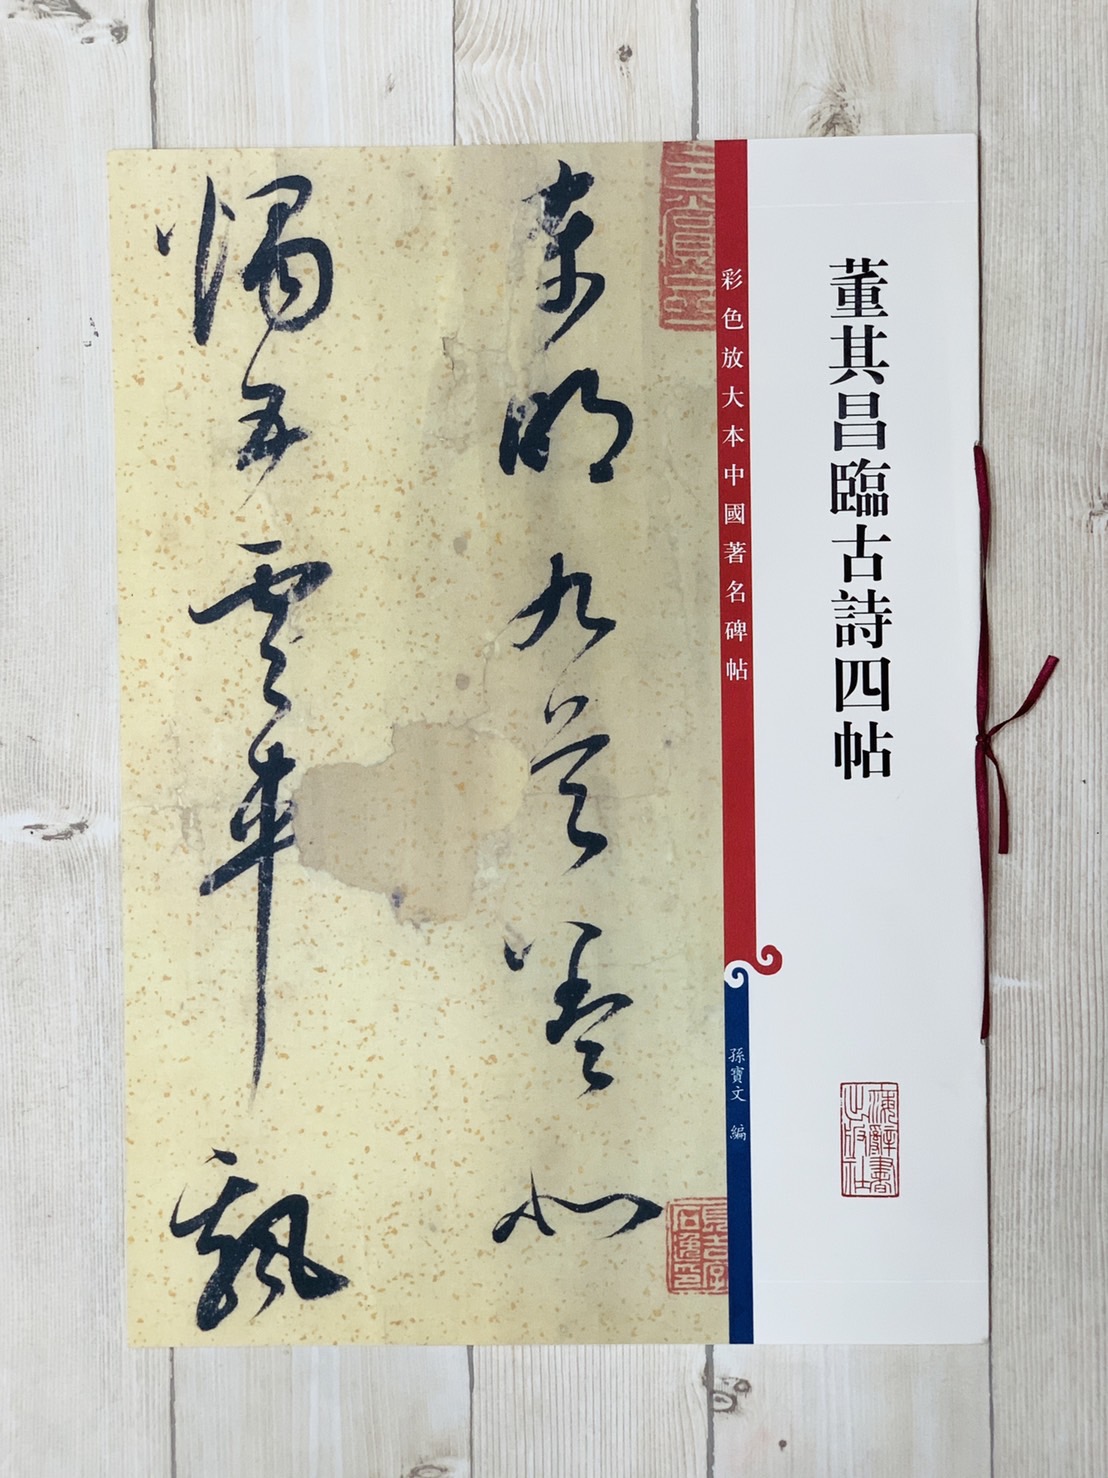 董其昌臨古詩四帖
上海辭書出版社
彩色放大本中國著名碑帖
孫寶文 編
東明九芝蓋北
燭五雲車飄